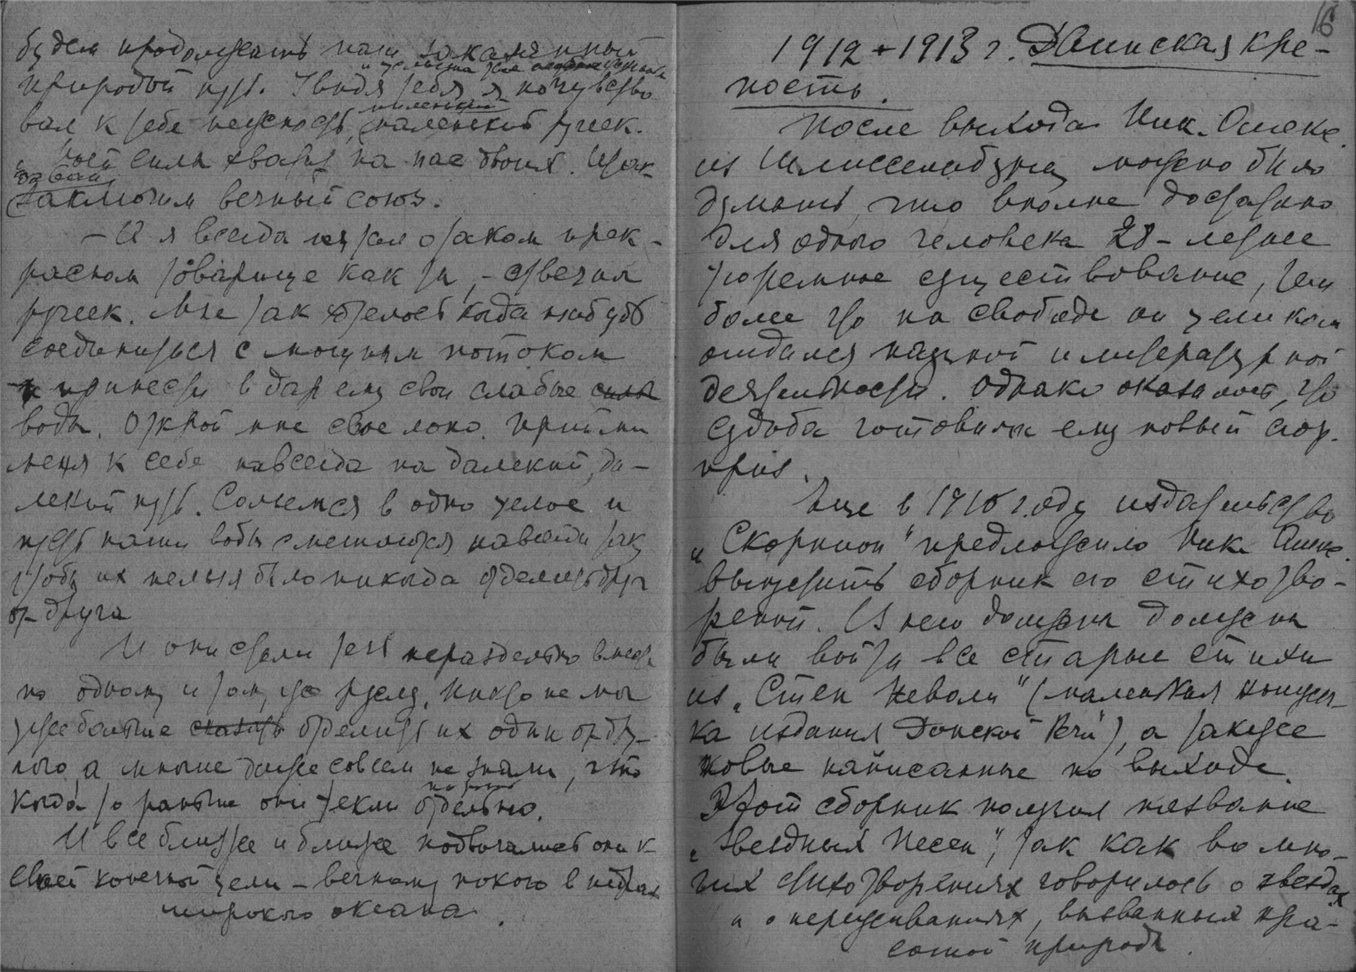 будем продолжать наш
природой путь. Увидя тебя я почувство
вал к тебе нежность, маленький ручеек.
Моей силы хватит на нас двоих.
давай
заключим вечный союз.
– А я всегда мечтал о таком прек-
расном товарище как ты, – отвечал
ручеек. Мне так хотелось когда нибудь
соединиться с могучим потоком
и принести в дар ему свои слабые силы
воды. Открой мне свое лоно. Прийми
меня к себе навсегда на далекий, да-
лекий путь. Сольемся в одно целое и
пусть наши воды смешаются навсегда так
чтобы их нельзя было никогда отделить друг
от друга
И они стали течь нераздельно вместе
по одному и тому же руслу. Никто не мог
уже больше сказать отделить их один от дру-
гого, а многие даже совсем не знали, что
когда то раньше они текли отдельно.
И все ближе и ближе подвигались они к
своей конечной цели – вечному покою в недрах
широкого океана.
16
1912 + 1913 г. Двинская кре-
пость.
После выхода Ник. Алекс.
из Шлиссельбурга можно было
думать, что вполне достаточно
для одного человека 28-летнее
тюремное существование, тем
более что на свободе он целиком
отдался научной и литературной
деятельности. Однако оказалось, что
судьба готовила ему новый сюр-
приз.
Еще в 1910 году издательство
"Скорпион" предложило Ник. Алекс.
выпустить сборник его стихотво-
рений. В него должны должны
были войти все старые стихи
из "Стен Неволи" (маленькая книжеч-
ка издания Донской Речи), а также
новые написанные по выходе.
Этот сборник получил название
"Звездных Песен", так как во мно-
гих стихотворениях говорилось о звездах
и о переживаниях, вызванных кра-
сотой природы.